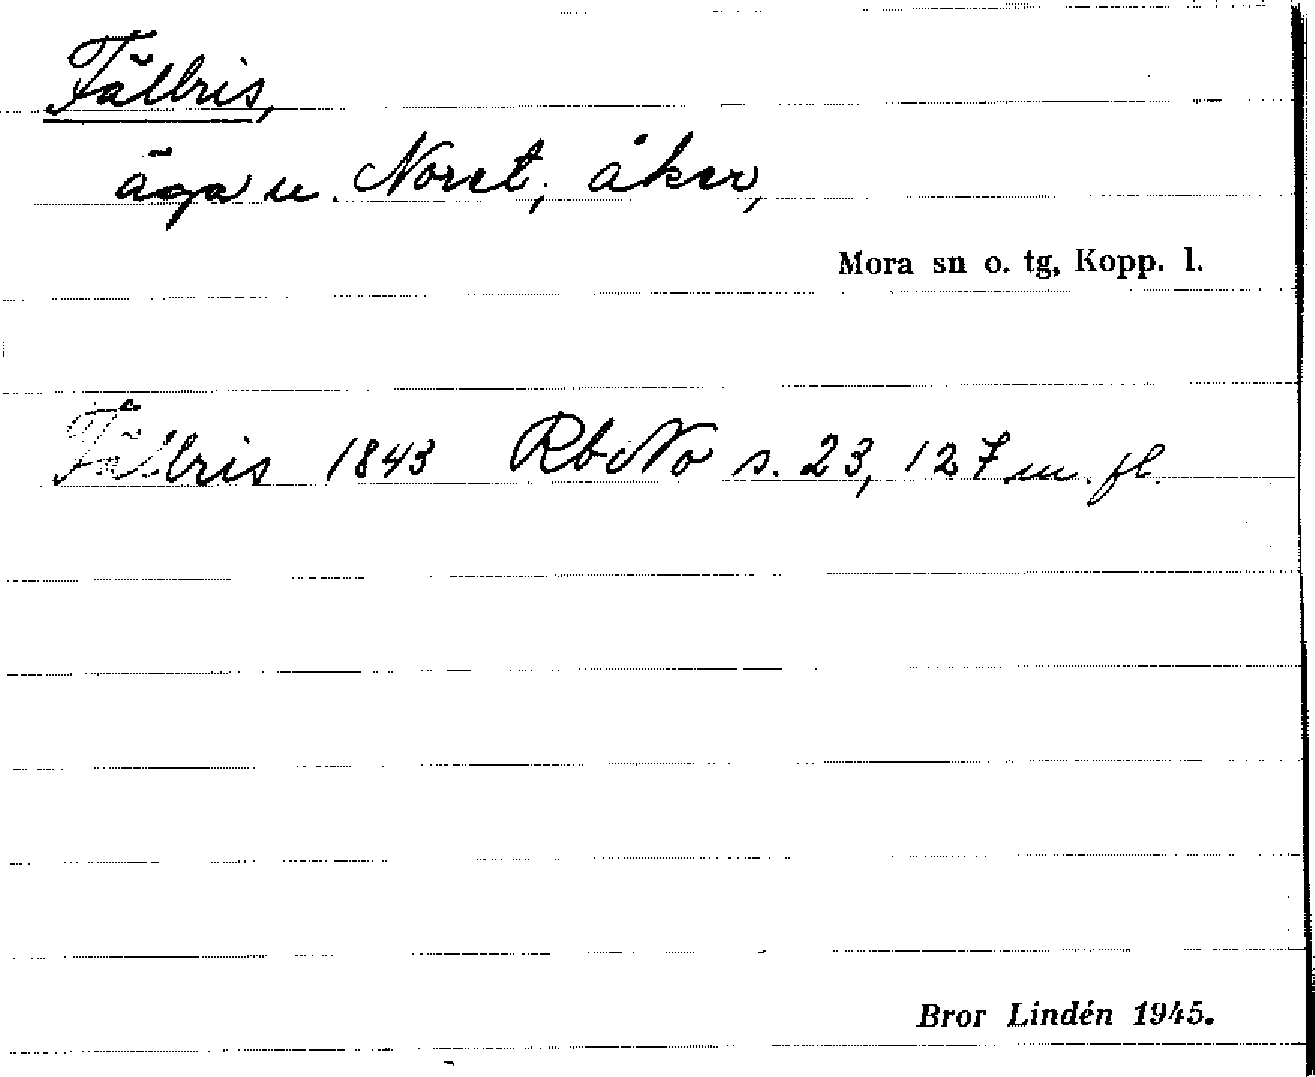 Fällris,
äga u. Noret, åker,
Mora sn o. tg, Kopp. l.
Fällris 1843 RbNo s. 23, 127 m. fl.
Bror Lindén 1945.